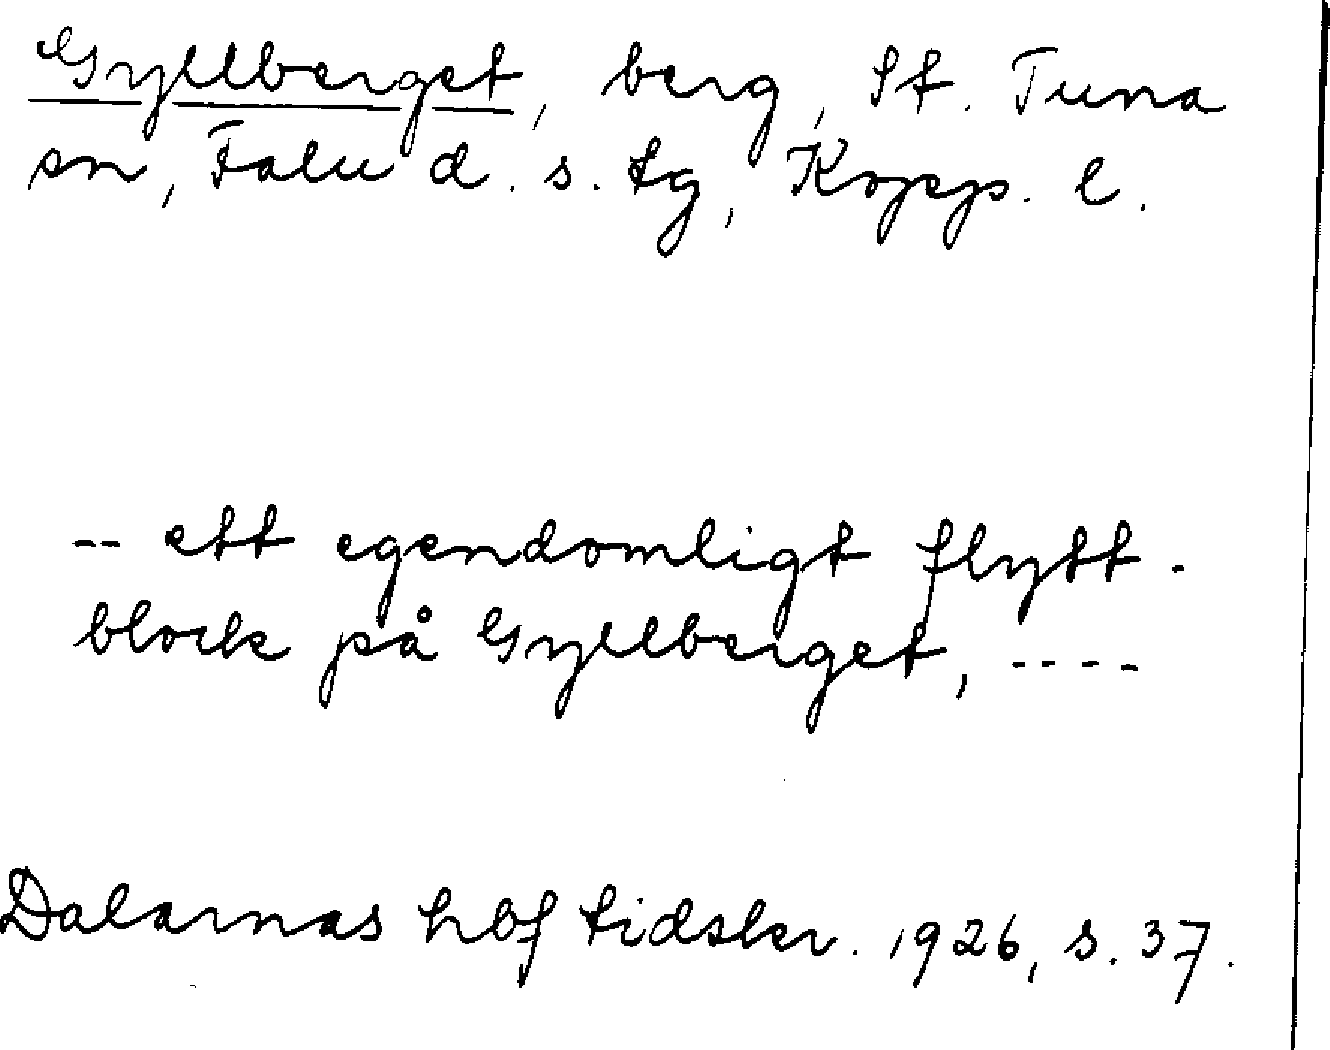 Gyllberget, berg, St. Tuna
sn, Falu d. s. tg, Kopp. l.
-- ett egendomligt flytt-
block på Gyllberget, ----
Dalarnas hbf tidskr. 1926, s. 37.